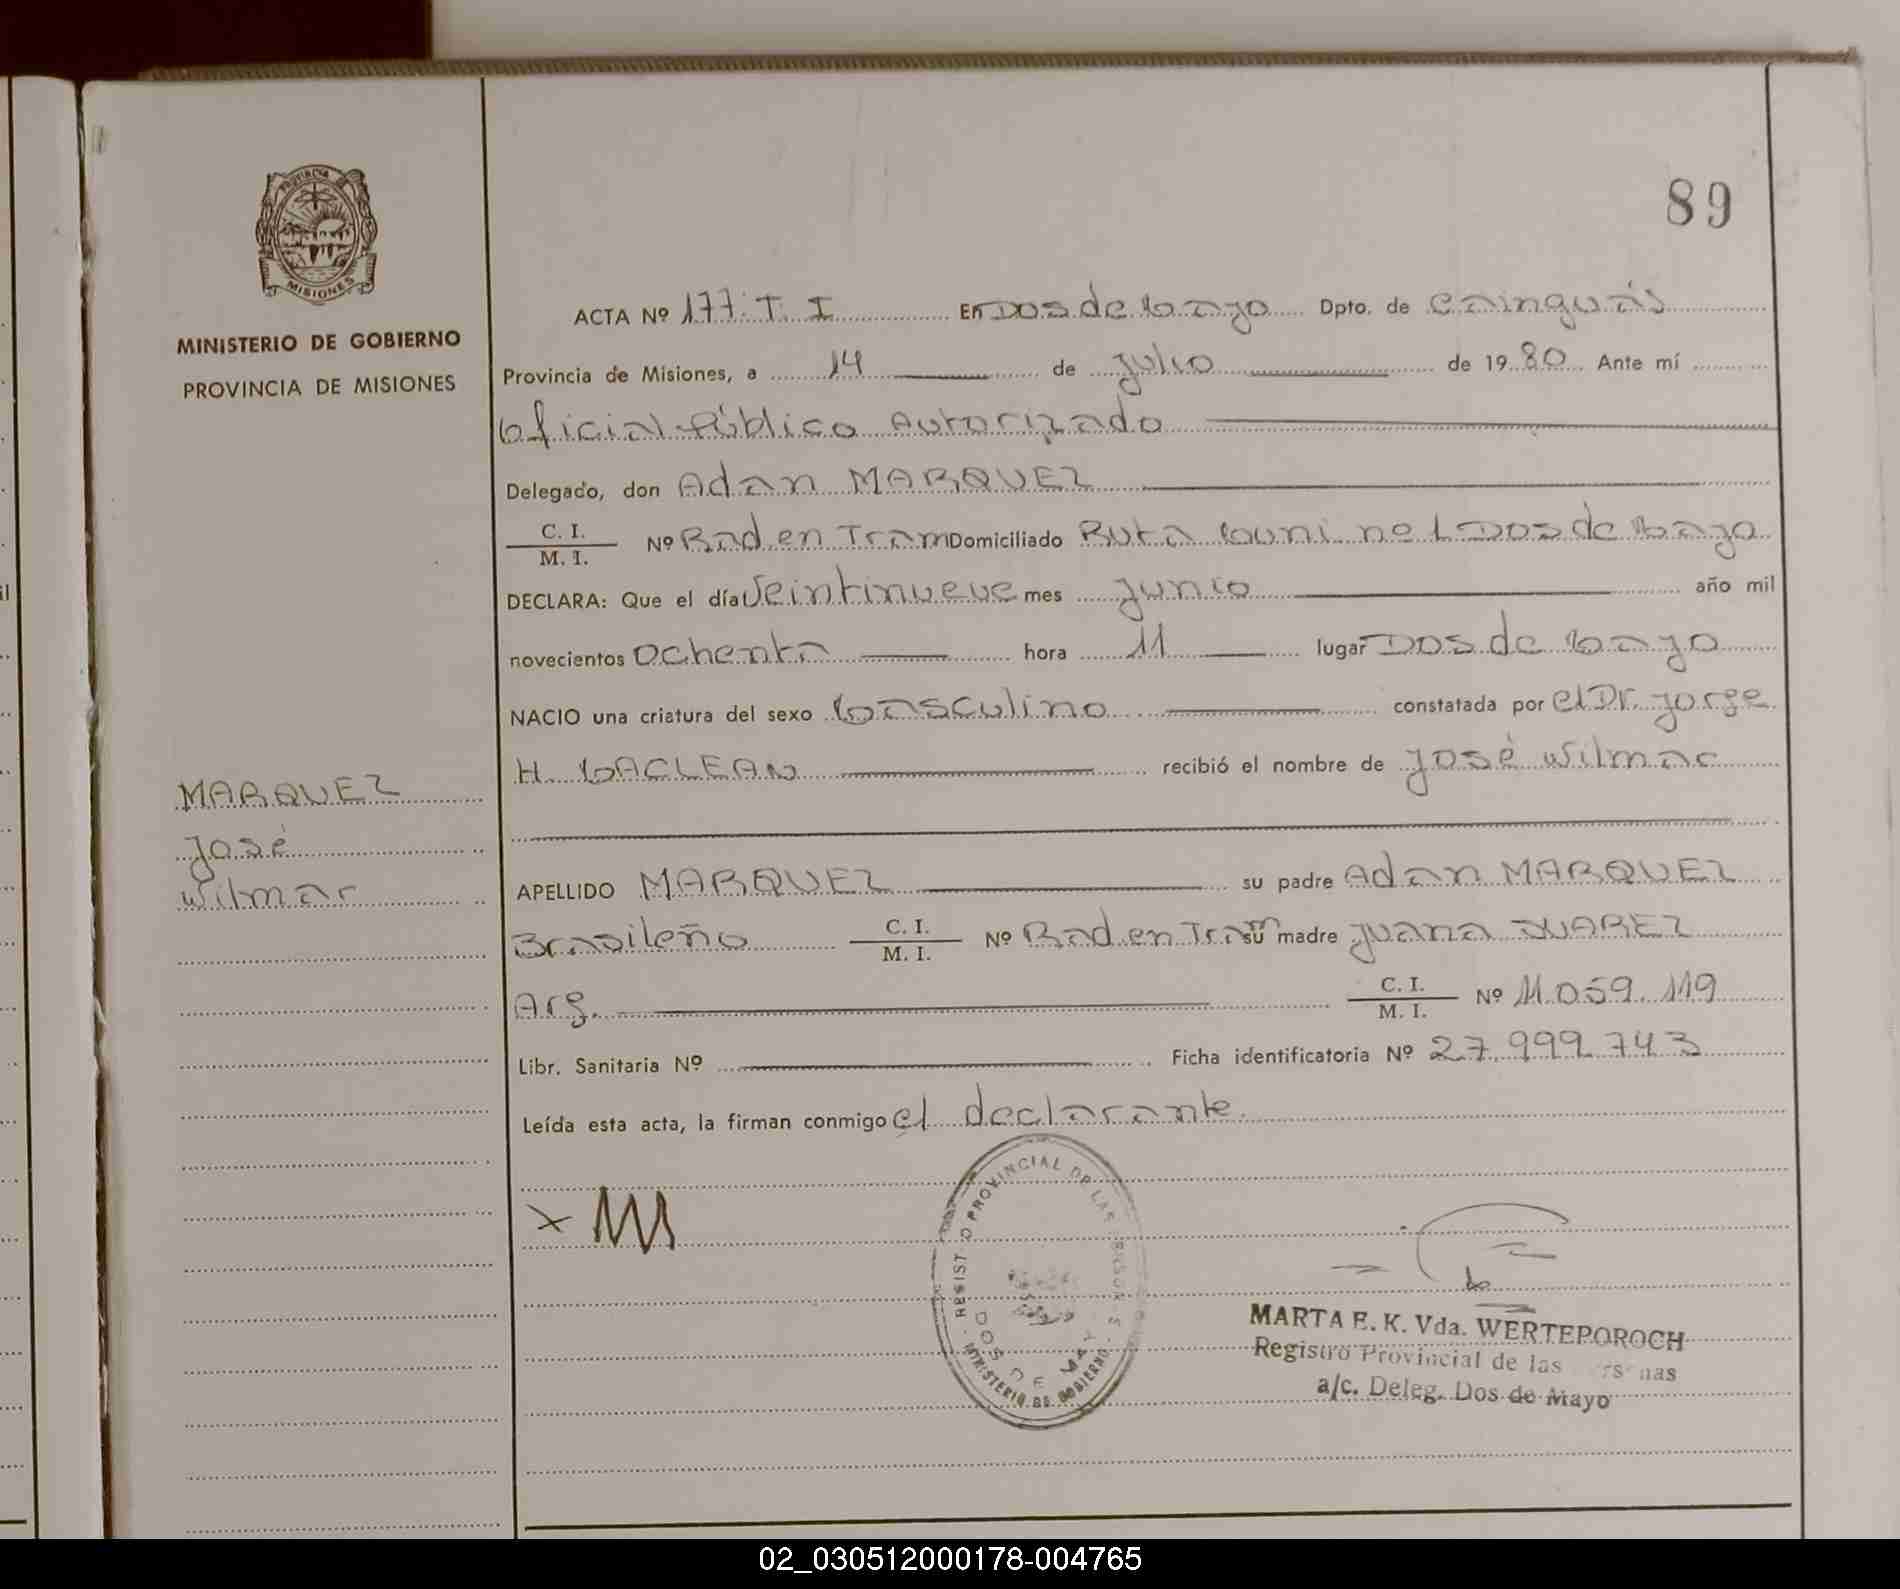 89
MINISTERIO DE GOBIERNO
PROVINCIA DE MISIONES
PROVINCIA
MISIONES
MARQUEZ
José
Wilmar
ACTA Nº 177. T. I En Dos de Mayo Dpto. de Cainguás
Provincia de Misiones, a 14 de Julio de 1980 Ante mí
Oficial Público Autorizado
Delegado, don Adan MARQUEZ
C. I. / M. I. Nº Rad en Tram Domiciliado Ruta Muni nº 1 Dos de Mayo
DECLARA: Que el día Veintinueve mes Junio año mil
novecientos Ochenta hora 11 lugar Dos de Mayo
NACIO una criatura del sexo Masculino constatada por el Dr. Jorge
H. MACLEAN recibió el nombre de José Wilmar
APELLIDO MARQUEZ su padre Adan MARQUEZ
Brasileño C. I. / M. I. Nº Rad en Tram su madre Juana SUAREZ
Arg. C. I. / M. I. Nº 11.059.119
Libr. Sanitaria Nº Ficha identificatoria Nº 27.999.743
Leída esta acta, la firman conmigo el declarante.
REGIST O PROVINCIAL DE LAS PERSONAS
DOS DE MAY
MINISTERIO DE GOBIERNO
MARTA E. K. Vda. WERTEPOROCH
Registro Provincial de las
a/c. Deleg. Dos de Mayo
02_030512000178-004765